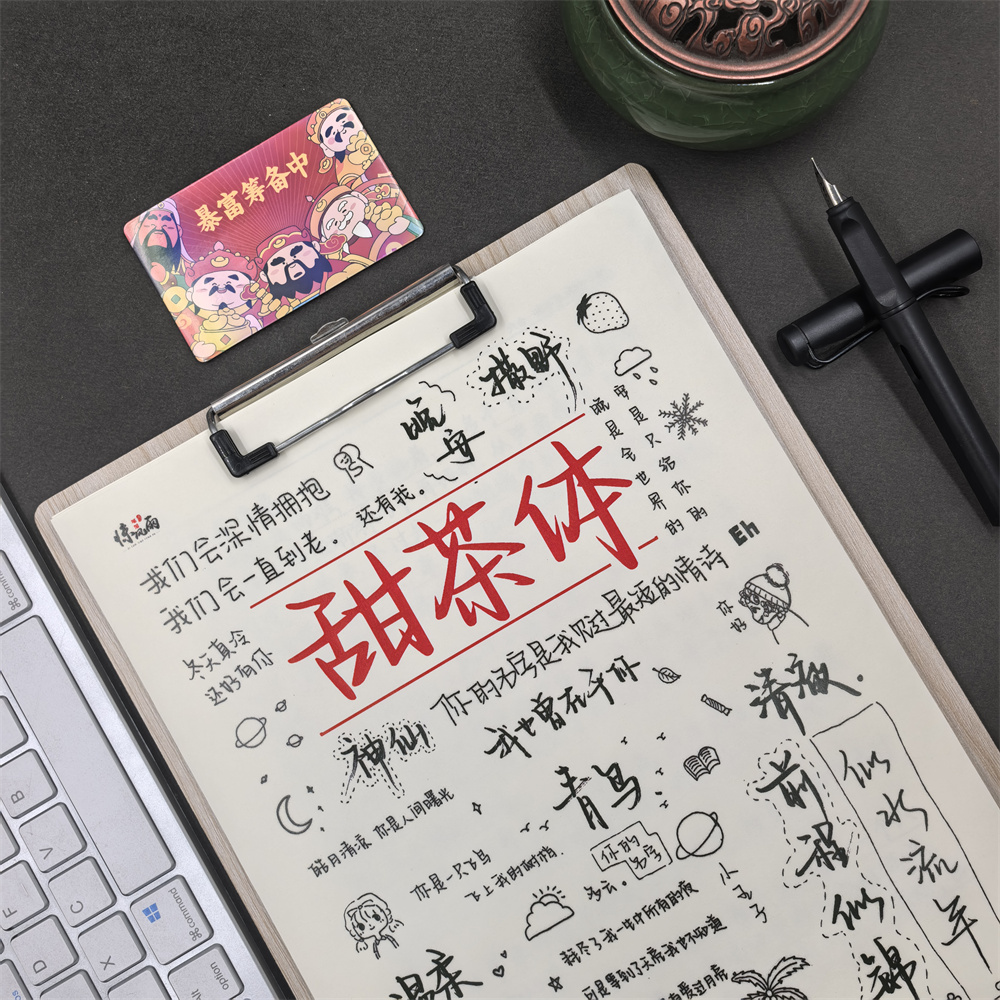 暴富筹备中
撒野
晚安
惊风雨
我们会深情拥抱
我们会一直到老。
还有我。
甜茶体
晚星是会
也是只给你的
Eh
冬天真冷
还好有你
你的名字是我见过最短的情诗
你好
神仙
我也曾在乎你
清欢.
青鸟
前程似锦
似水流年
皓月清凉 你是人间曙光
你是一只飞鸟
飞上我的树梢
你的名字
多云。
小王子
耗尽了我一生中所有的夜
可是等到了天亮我也不知道
温柔
B
F
C
D
X
command
option
Alt